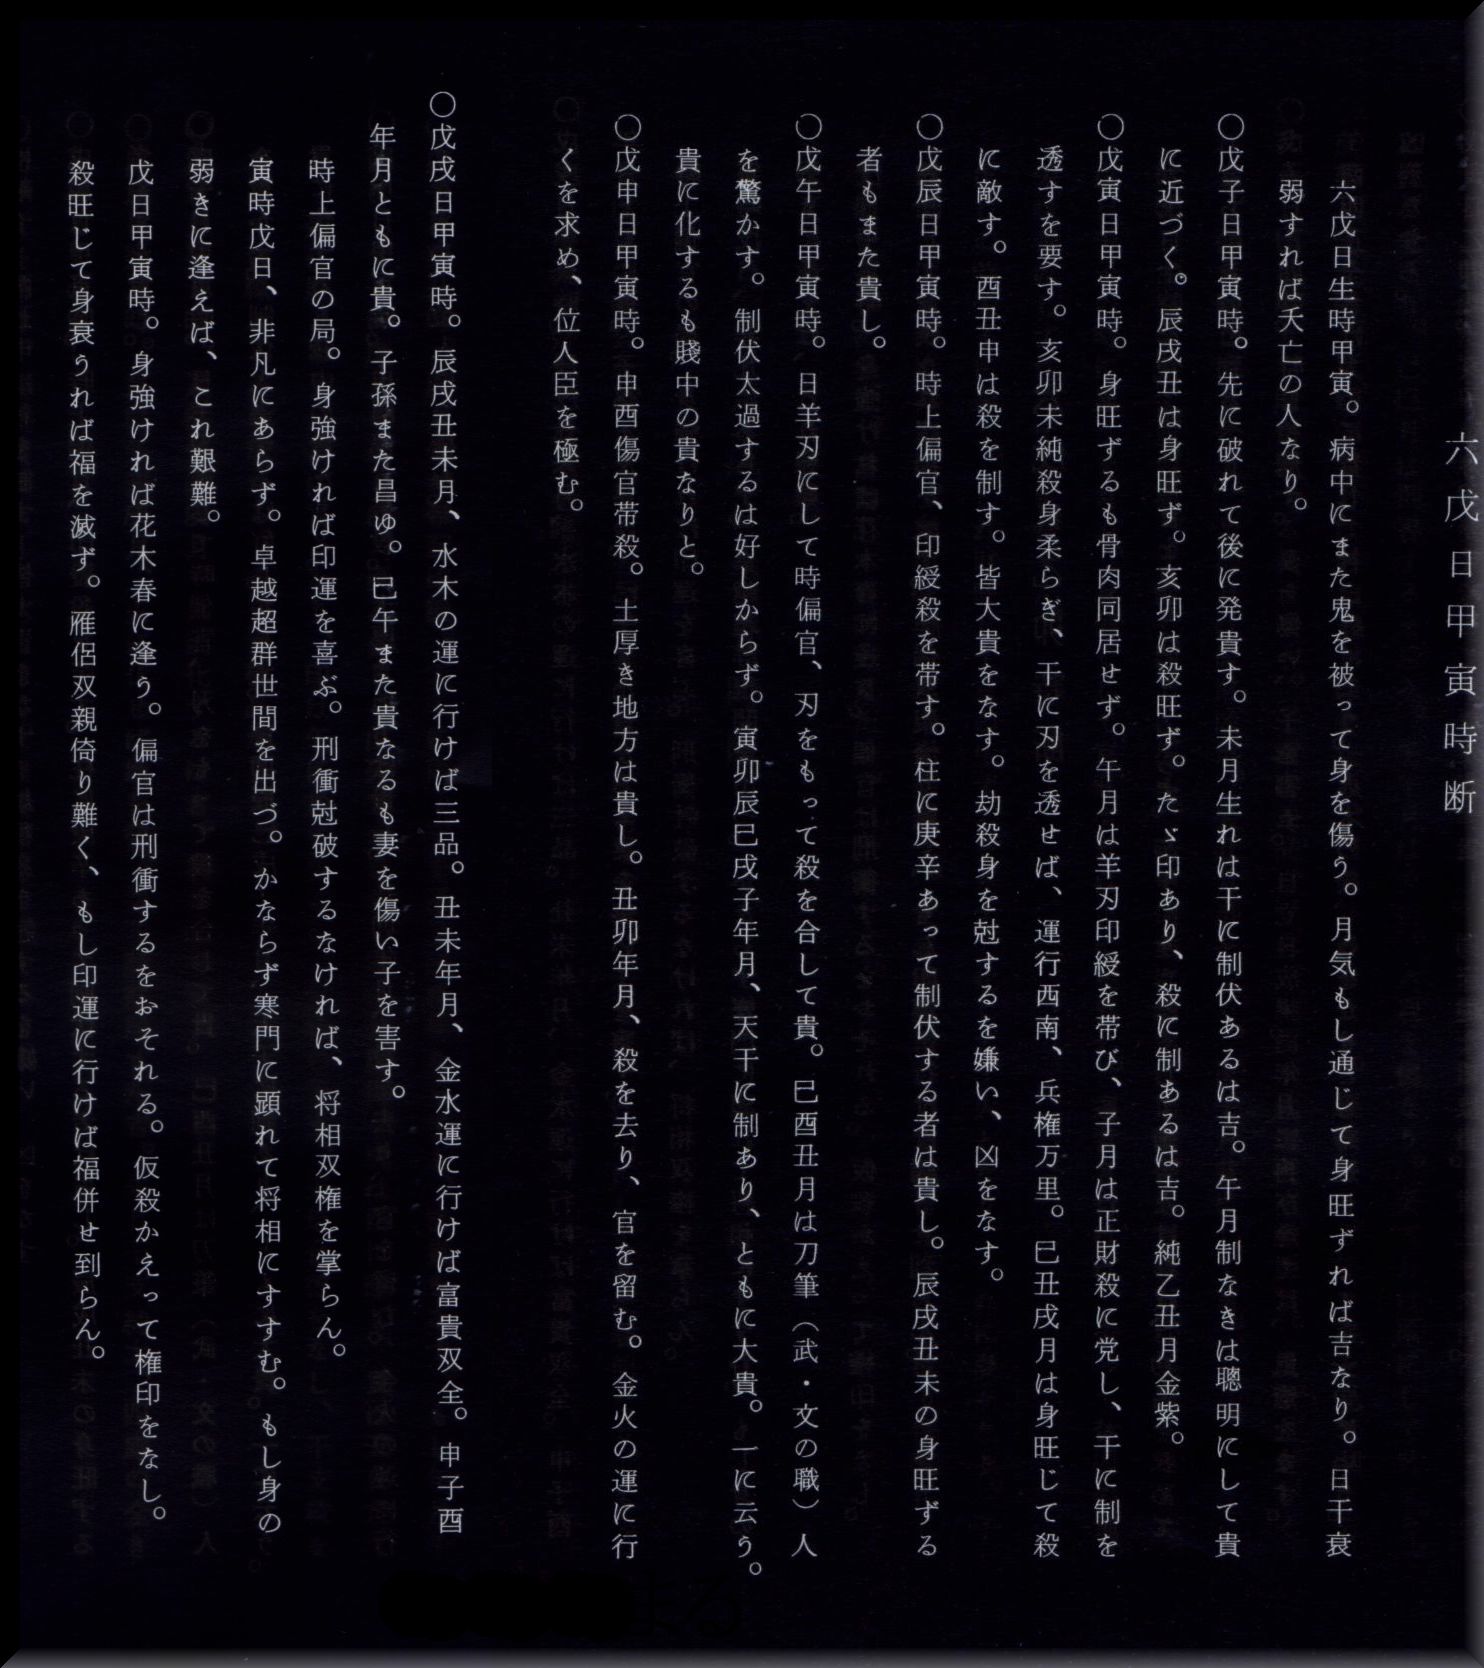 六戊日甲寅時断
六戊日生時甲寅。病中にまた鬼を被って身を傷う。月気もし通じて身旺ずれば吉なり。日干衰
弱すれば夭亡の人なり。
〇戊子日甲寅時。先に破れて後に発貴す。未月生れは干に制伏あるは吉。午月制なきは聰明にして貴
に近づく。辰戌丑は身旺ず。亥卯は殺旺ず。たゞ印あり、殺に制あるは吉。純乙丑月金紫。
〇戊寅日甲寅時。身旺ずるも骨肉同居せず。午月は羊刃印綬を帯び、子月は正財殺に党し、干に制を
透すを要す。亥卯未純殺身柔らぎ、干に刃を透せば、運行西南、兵権万里。巳丑戌月は身旺じて殺
に敵す。酉丑申は殺を制す。皆大貴をなす。劫殺身を尅するを嫌い、凶をなす。
〇戊辰日甲寅時。時上偏官、印綬殺を帯す。柱に庚辛あって制伏する者は貴し。辰戌丑未の身旺ずる
者もまた貴し。
〇戊午日甲寅時。日羊刃にして時偏官、刃をもって殺を合して貴。巳酉丑月は刀筆（武・文の職）人
を驚かす。制伏太過するは好しからず。寅卯辰巳戌子年月、天干に制あり、ともに大貴。一に云う。
貴に化するも賤中の貴なりと。
〇戊申日甲寅時。申酉傷官帯殺。土厚き地方は貴し。丑卯年月、殺を去り、官を留む。金火の運に行
くを求め、位人臣を極む。
〇戊戌日甲寅時。辰戌丑未月、水木の運に行けば三品。丑未年月、金水運に行けば富貴双全。申子酉
年月ともに貴。子孫また昌ゆ。巳午また貴なるも妻を傷い子を害す。
時上偏官の局。身強ければ印運を喜ぶ。刑衝尅破するなければ、将相双権を掌らん。
寅時戊日、非凡にあらず。卓越超群世間を出づ。かならず寒門に顕れて将相にすすむ。もし身の
弱きに逢えば、これ艱難。
戊日甲寅時。身強ければ花木春に逢う。偏官は刑衝するをおそれる。仮殺かえって権印をなし。
殺旺じて身衰うれば福を滅ず。雁侶双親倚り難く、もし印運に行けば福併せ到らん。